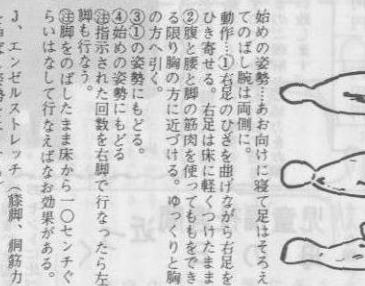 始めの姿勢…あお向けに寝て足はそろえ
てのばし腕は両側に。
動作…①右足のひざを曲げながら右足を
ひき寄せる。右足は床に軽くつけたまま
②腹と腰と脚の筋肉を使ってももをでき
る限り胸の方に近づける。ゆっくりと胸
の方へ引く。
③①の姿勢にもどる。
④始めの姿勢にもどる
㊟指示された回数を右脚で行なったら左
脚も行なう。
㊟脚をのばしたまま床から一〇センチぐ
らいはなして行なえばなお効果がある。
J、エンゼルストレッチ（膝脚、胴筋力